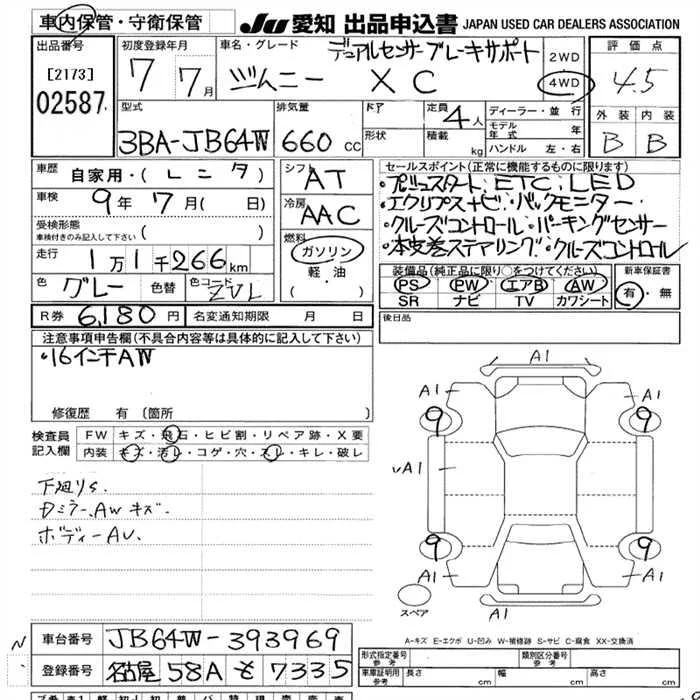 車内保管・守衛保管
JU 愛知 出品申込書 JAPAN USED CAR DEALERS ASSOCIATION
出品番号
[2173]
02587
初度登録年月
7 7月
車名・グレード
デュアルセンサーブレーキサポート
ジムニー XC
2WD
4WD
評価点
4.5
外装 内装
B B
型式
3BA-JB64W
排気量
660 cc
ドア
形状
定員 4人
積載 kg
ディーラー・並行
モデル年式 年
ハンドル 左・右
車歴 自家用・(レンタ)
車検 9年7月( 日)
受検形態
車検付きのみ記入して下さい ( )
走行 1万1千266km
色 グレー 色替 色コード ZVL
シフト AT
冷房 AAC
燃料
ガソリン
軽油
( ・ )
セールスポイント(正常に機能するものに限ります)
・プッシュスタート:ETC:LED
・エクリプスナビ・バックモニター
・クルーズコントロール・パーキングセンサー
・本皮巻ステアリング・クルーズコントロール
装備品(純正品に限り○をつけてください)
PS PW エアB AW
SR ナビ TV カワシート
新車保証書
有・無
R券 6,180円 名変通知期限 月 日
後日品
注意事項申告欄(不具合内容等は具体的に記入して下さい)
・16インチAW
修復歴 有 (箇所
検査員記入欄
FW キズ・飛石・ヒビ割・リペア跡・X要
内装 キズ・汚レ・コゲ・穴・スレ・キレ・破レ
下廻りS
Dミラー、AWキズ
ボディーAU
A1
A1 A1
9 9
vA1 A1
9 9
A1 A1
A1
スペア
A-キズ E-エクボ U-凹み W-補修跡 S-サビ C-腐食 XX-交換済
車台番号 JB64W-393969
登録番号 名古屋 58A も 7335
N
型式指定番号 参考
類別区分番号 参考
車庫証明用 参考 長さ cm 幅 cm 高さ cm